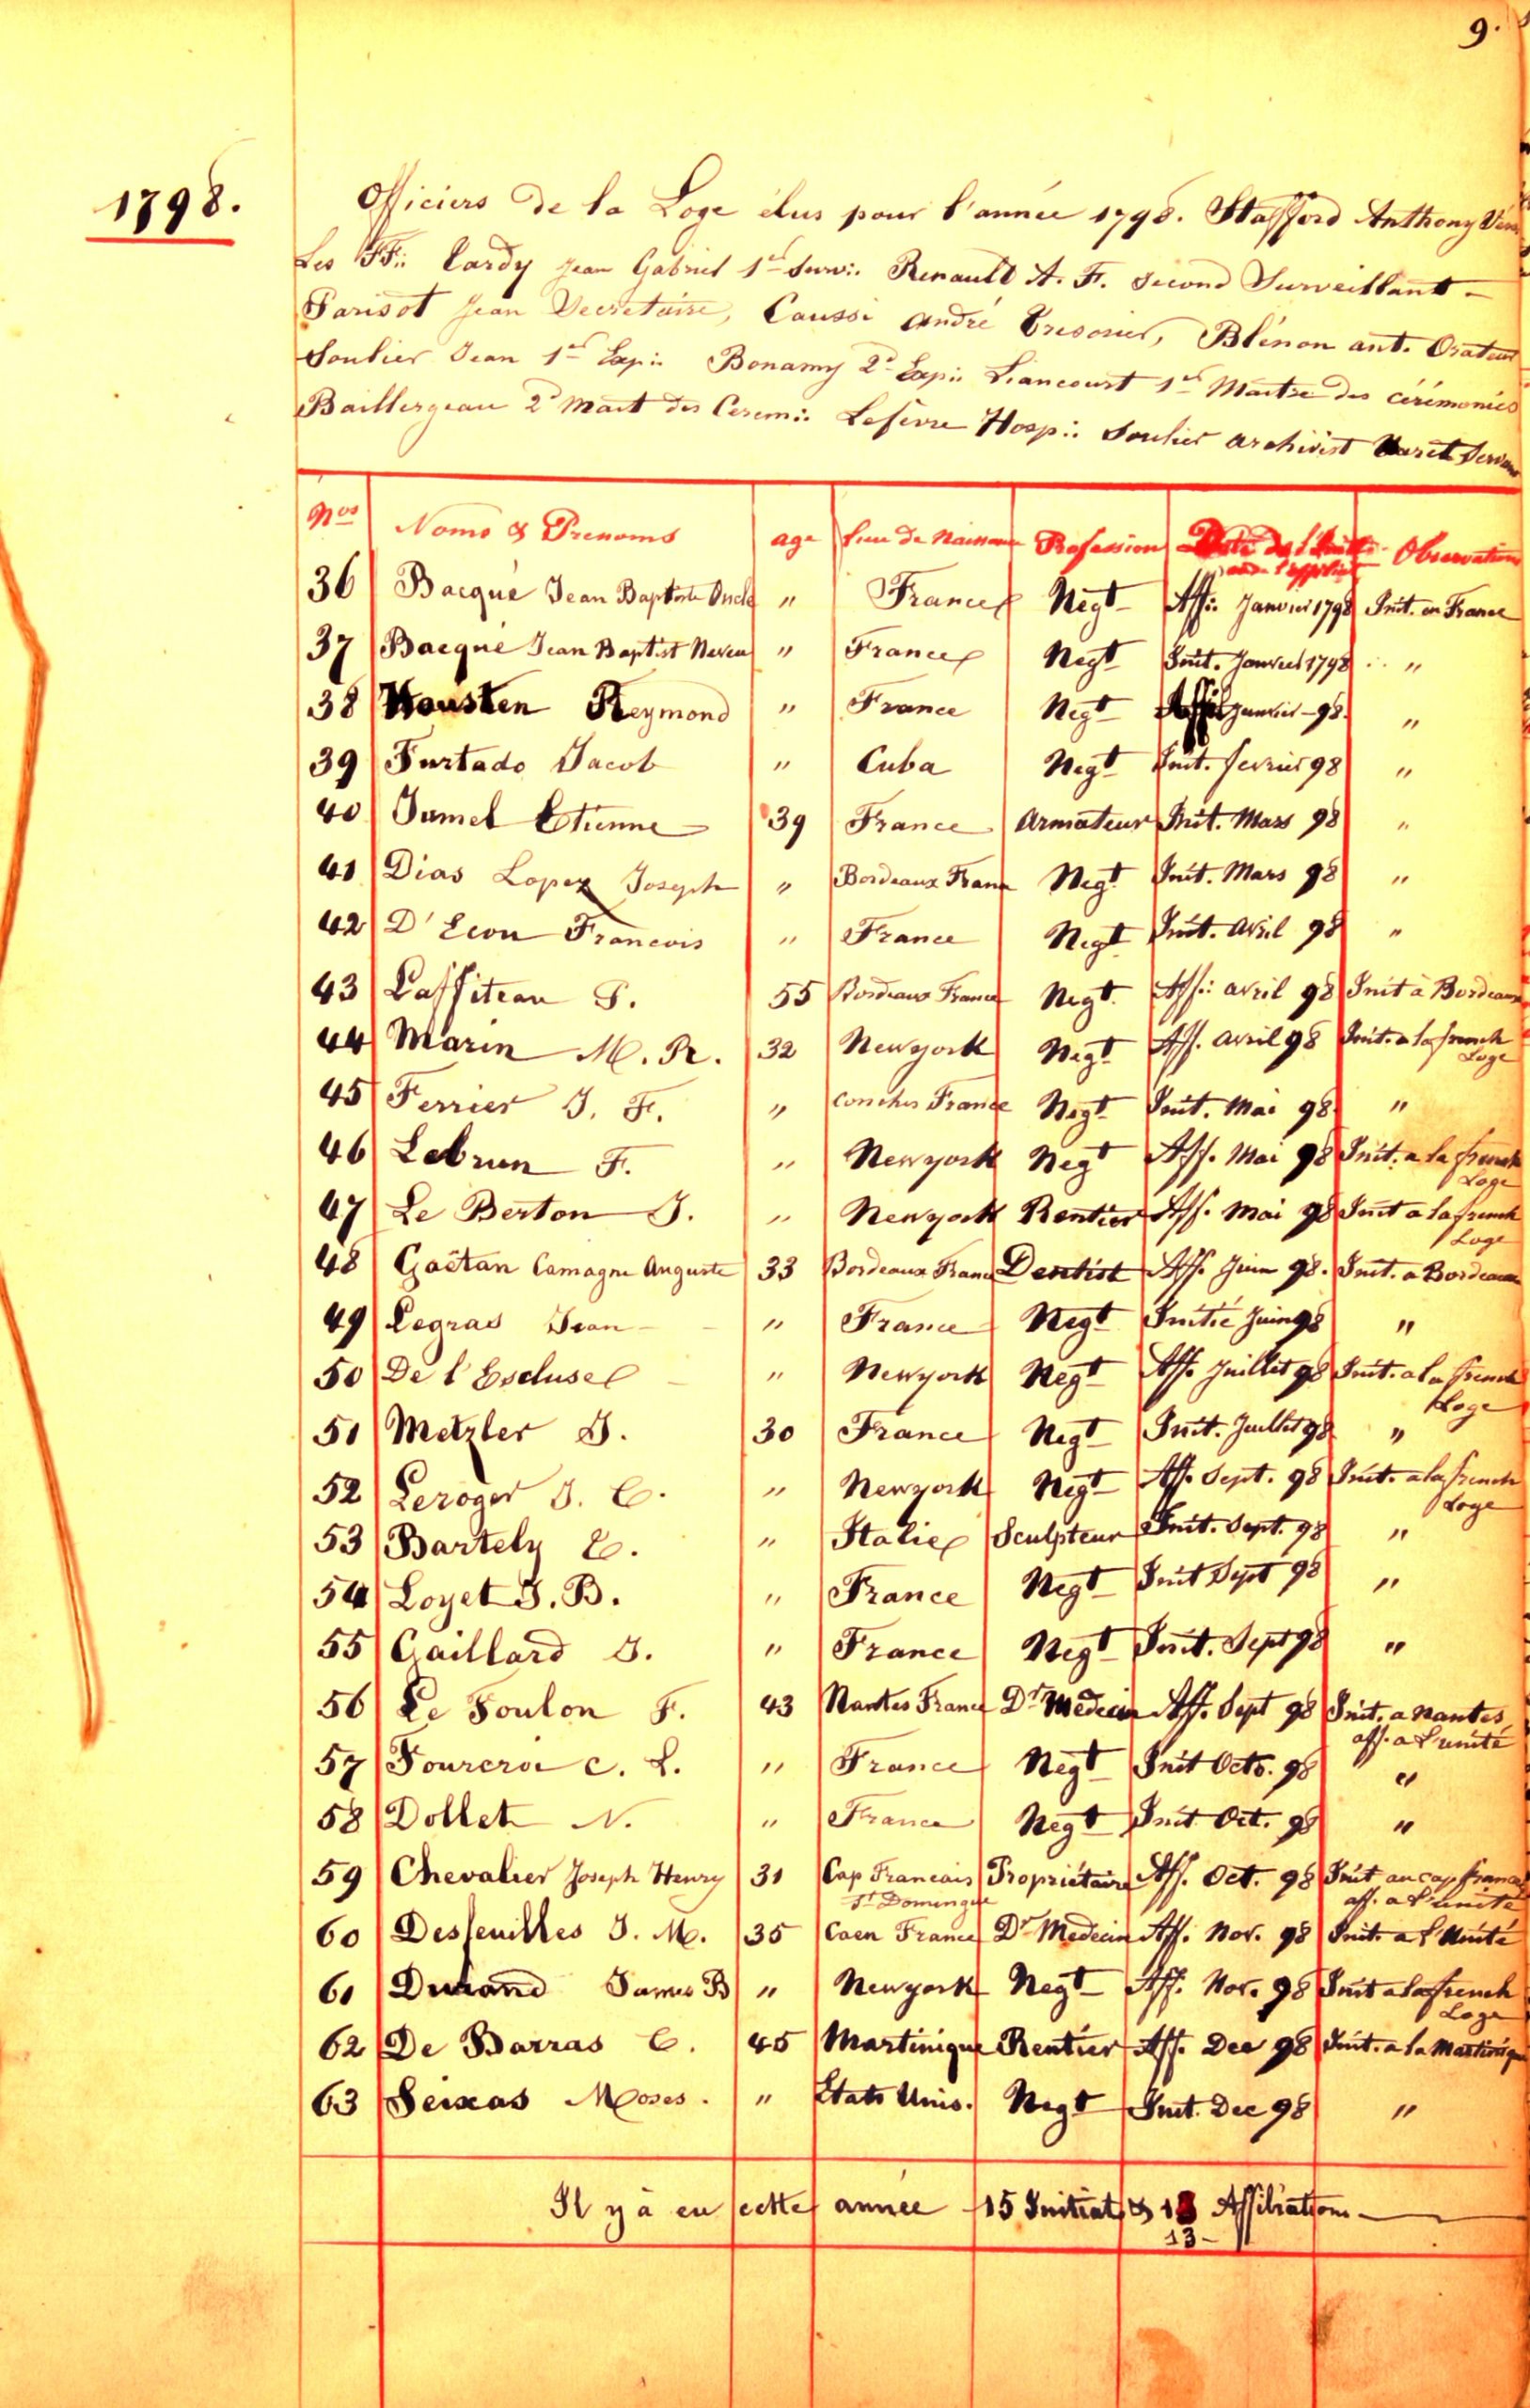 9.
1798.
Officiers de la Loge élus pour l'année 1798. Stafford Anthony Vén
Les FF∴ Tardy Jean Gabriel 1er Surv∴ Renault A. F. Second Surveillant —
Parisot Jean Secretaire, Caussé André Tresorier, Blénon ant. Orateur
Soulier Jean 1er Exp∴ Bonamy 2d Exp∴ Liancourt 1er Maitre des cérémonies
Baillergeau 2d Mait des Cerem∴ Lefèvre Hosp∴ Soulier archivist Varet Servant
Nos Noms & Prenoms age lieu de Naissance Profession Date de l'Initt. Observations
ou de l'affiliat
36 Bacqué Jean Baptiste Oncle " France Negt Aff∴ Janvier 1798 Init. en France
37 Bacqué Jean Baptist Neveu " France Negt Init. Janvier 1798 "
38 Housten Reymond " France Negt Affil Janvier – 98. "
39 Furtado Jacob " Cuba Negt Init. fevrier 98 "
40 Jumel Etienne 39 France Armateur Init. Mars 98 "
41 Dias Lopez Joseph " Bordeaux France Negt Init. Mars 98 "
42 D'Eon Francois " France Negt Init. Avril 98 "
43 Laffiteau P. 55 Bordeaux France Negt. Aff∴ avril 98 Init à Bordeaux
44 Marin M. R. 32 Newyork Negt Aff. avril 98 Init. a la french
Loge
45 Ferrier J. F. " Conches France Negt Init. Mai 98. "
46 Lebrun F. " Newyork Negt Aff. Mai 98 Init. a la french
Loge
47 Le Berton J. " Newyork Rentier Aff. Mai 98 Init a la french
Loge
48 Gaëtan Camagne Auguste 33 Bordeaux France Dentist Aff. Juin 98. Init. a Bordeaux
49 Legras Jean — " France Negt Initié Juin 98 "
50 De l'Escluse — " Newyork Negt Aff. Juillet 98 Init. a la french
Loge
51 Metzler J. 30 France Negt Init. Juillet 98 "
52 Leroger J. C. " Newyork Negt Aff. Sept. 98 Init. a la french
Loge
53 Bartely C. " Italie Sculpteur Init. Sept. 98 "
54 Loyet J. B. " France Negt Init Sept 98 "
55 Gaillard J. " France Negt Init. Sept 98 "
56 Le Foulon F. 43 Nantes France Dr Médecin Aff. Sept 98 Init. a Nantes
aff. a l'unité
57 Fourcroi C. L. " France Negt Init Octo. 98 "
58 Dollet N. " France Negt Init Oct. 98 "
59 Chevalier Joseph Henry 31 Cap Francais Propriétaire Aff. Oct. 98 Init au cap francais
St Domingue aff. a l'unité
60 Desfeuilles J. M. 35 Caen France Dr Medecin Aff. Nov. 98 Init. a l'Unité
61 Durand James B " Newyork Negt Aff. Nov. 98 Init a la french
Loge
62 De Barras C. 45 Martinique Rentier Aff. Dec 98 Init. a la Martinique
63 Seixas Moses. " Etats Unis. Negt Init. Dec 98 "
Il y à eu cette année 15 Initiat & 13 Affiliations —
13 –